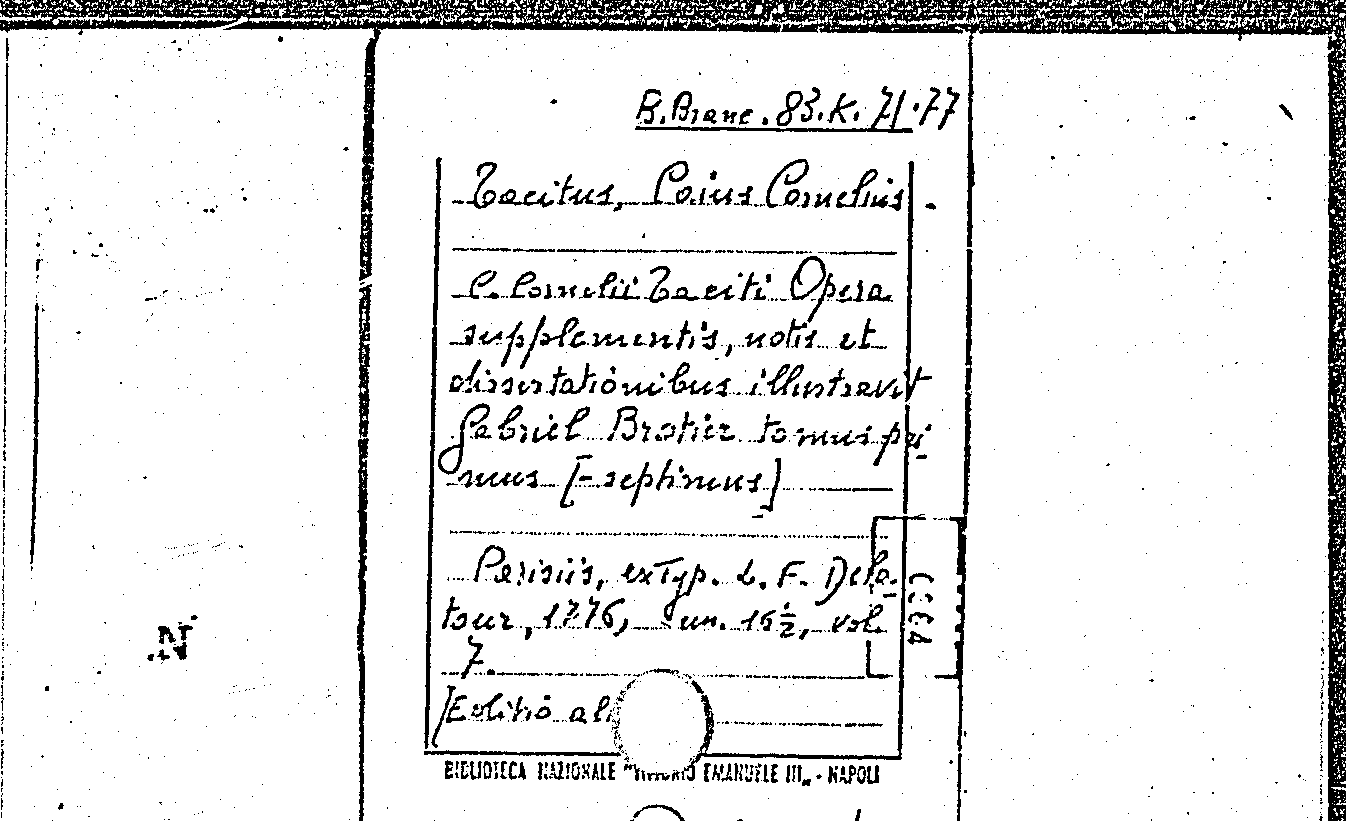 B. Branc. 83. K. 71-77
Tacitus, Caius Cornelius.
C. Cornelii Taciti Opera
supplementis, notis et
dissertationibus illustravit
Gabriel Brotier tomus pri-
mus [-septimus]
Parisiis, ex Typ. L. F. Dela-
tour, 1776, un. 16½, vol.
7.
[Editio al
BIBLIOTECA NAZIONALE "VITTORIO EMANUELE III" - NAPOLI
N